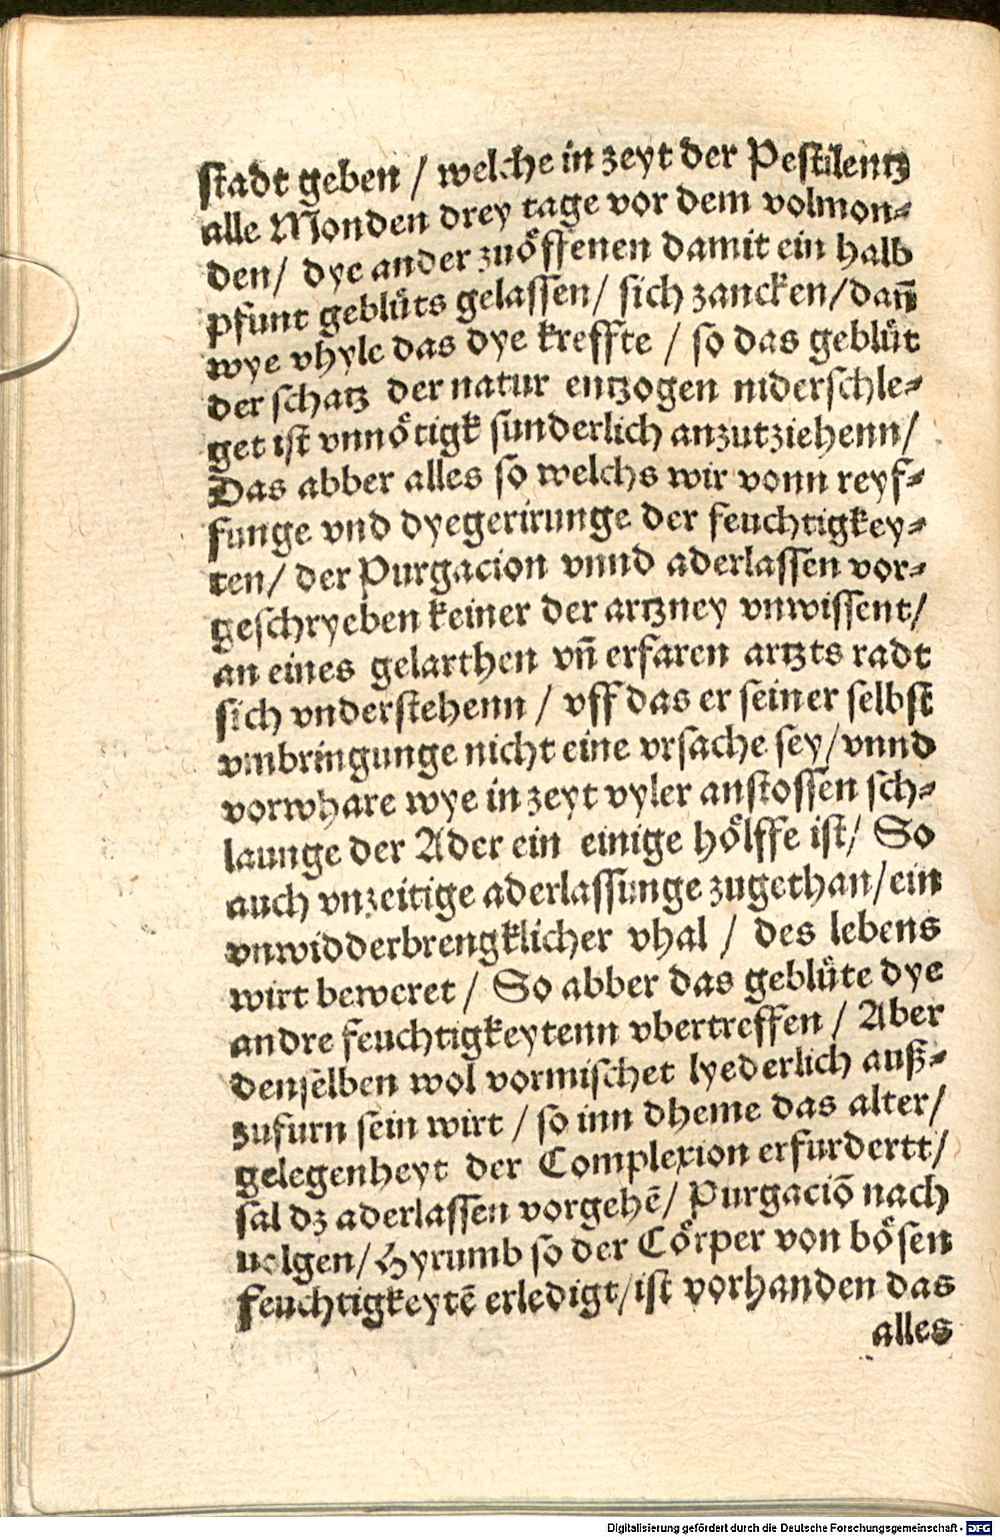 stadt geben / welche in zeyt der Pestilentz
alle Monden drey tage vor dem volmon⸗
den / dye ander zuöffenen damit ein halb
pfunt geblüts gelassen / sich zancken / dañ
wye vhyle das dye kreffte / so das geblüt
der schatz der natur entzogen niderschle⸗
get ist vnnötigk sunderlich anzutziehenn /
Das abber alles so welchs wir vonn reyf⸗
funge vnd dyegerirunge der feuchtigkey⸗
ten / der Purgacion vnnd aderlassen vor⸗
geschryeben keiner der artzney vnwissent /
an eines gelarthen vñ erfaren artzts radt
sich vnderstehenn / vff das er seiner selbst
vmbringunge nicht eine vrsache sey / vnnd
vorwhare wye in zeyt vyler anstossen sch⸗
launge der Ader ein einige hölffe ist / So
auch vnzeitige aderlassunge zugethan / ein
vnwidderbrengklicher vhal / des lebens
wirt beweret / So abber das geblüte dye
andre feuchtigkeytenn vbertreffen / Aber
denselben wol vormischet lyederlich auß⸗
zufurn sein wirt / so inn dheme das alter /
gelegenheyt der Complexion erfurdertt /
sal dz aderlassen vorgehē / Purgaciō nach
uolgen / Hyrumb so der Cörper von bösen
feuchtigkeytē erledigt / ist vorhanden das
alles
Digitalisierung gefördert durch die Deutsche Forschungsgemeinschaft - DFG